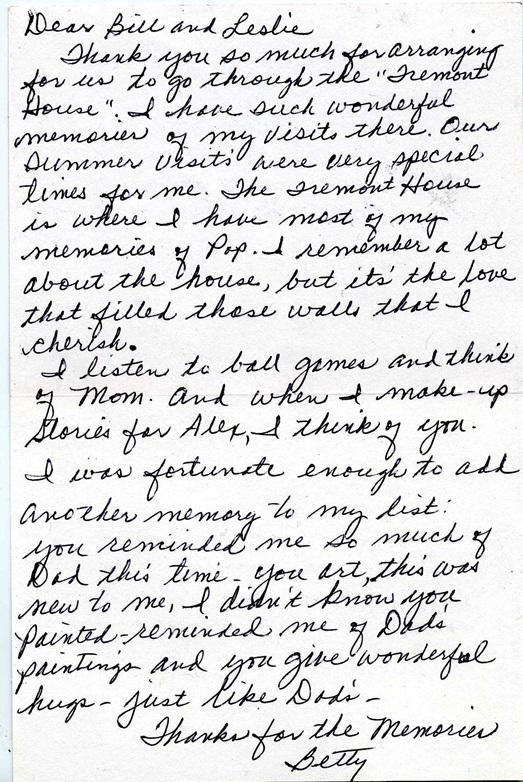 Dear Bill and Leslie
Thank you so much for arranging
for us to go through the "Tremont
House". I have such wonderful
memories of my visits there. Our
summer visits were very special
times for me. The Tremont House
is where I have most of my
memories of Pop. I remember a lot
about the house, but it's the love
that filled those walls that I
cherish.
I listen to ball games and think
of Mom. And when I make-up
stories for Alex, I think of you.
I was fortunate enough to add
another memory to my list:
you reminded me so much of
Dad this time - you art, this was
new to me, I didn't know you
painted - reminded me of Dad's
paintings and you give wonderful
hugs - just like Dad's -
Thanks for the Memories
Betty